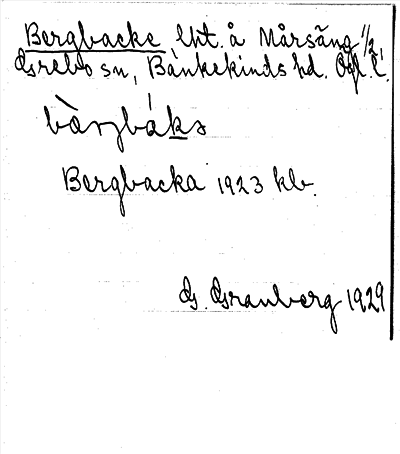 Bergbacke, lht. å Mårsäng 1/2,
Grebo sn, Bankekinds hd. Ögl. l.
bàrjbáka
Bergbacka 1923 klb.
G. Granberg 1929